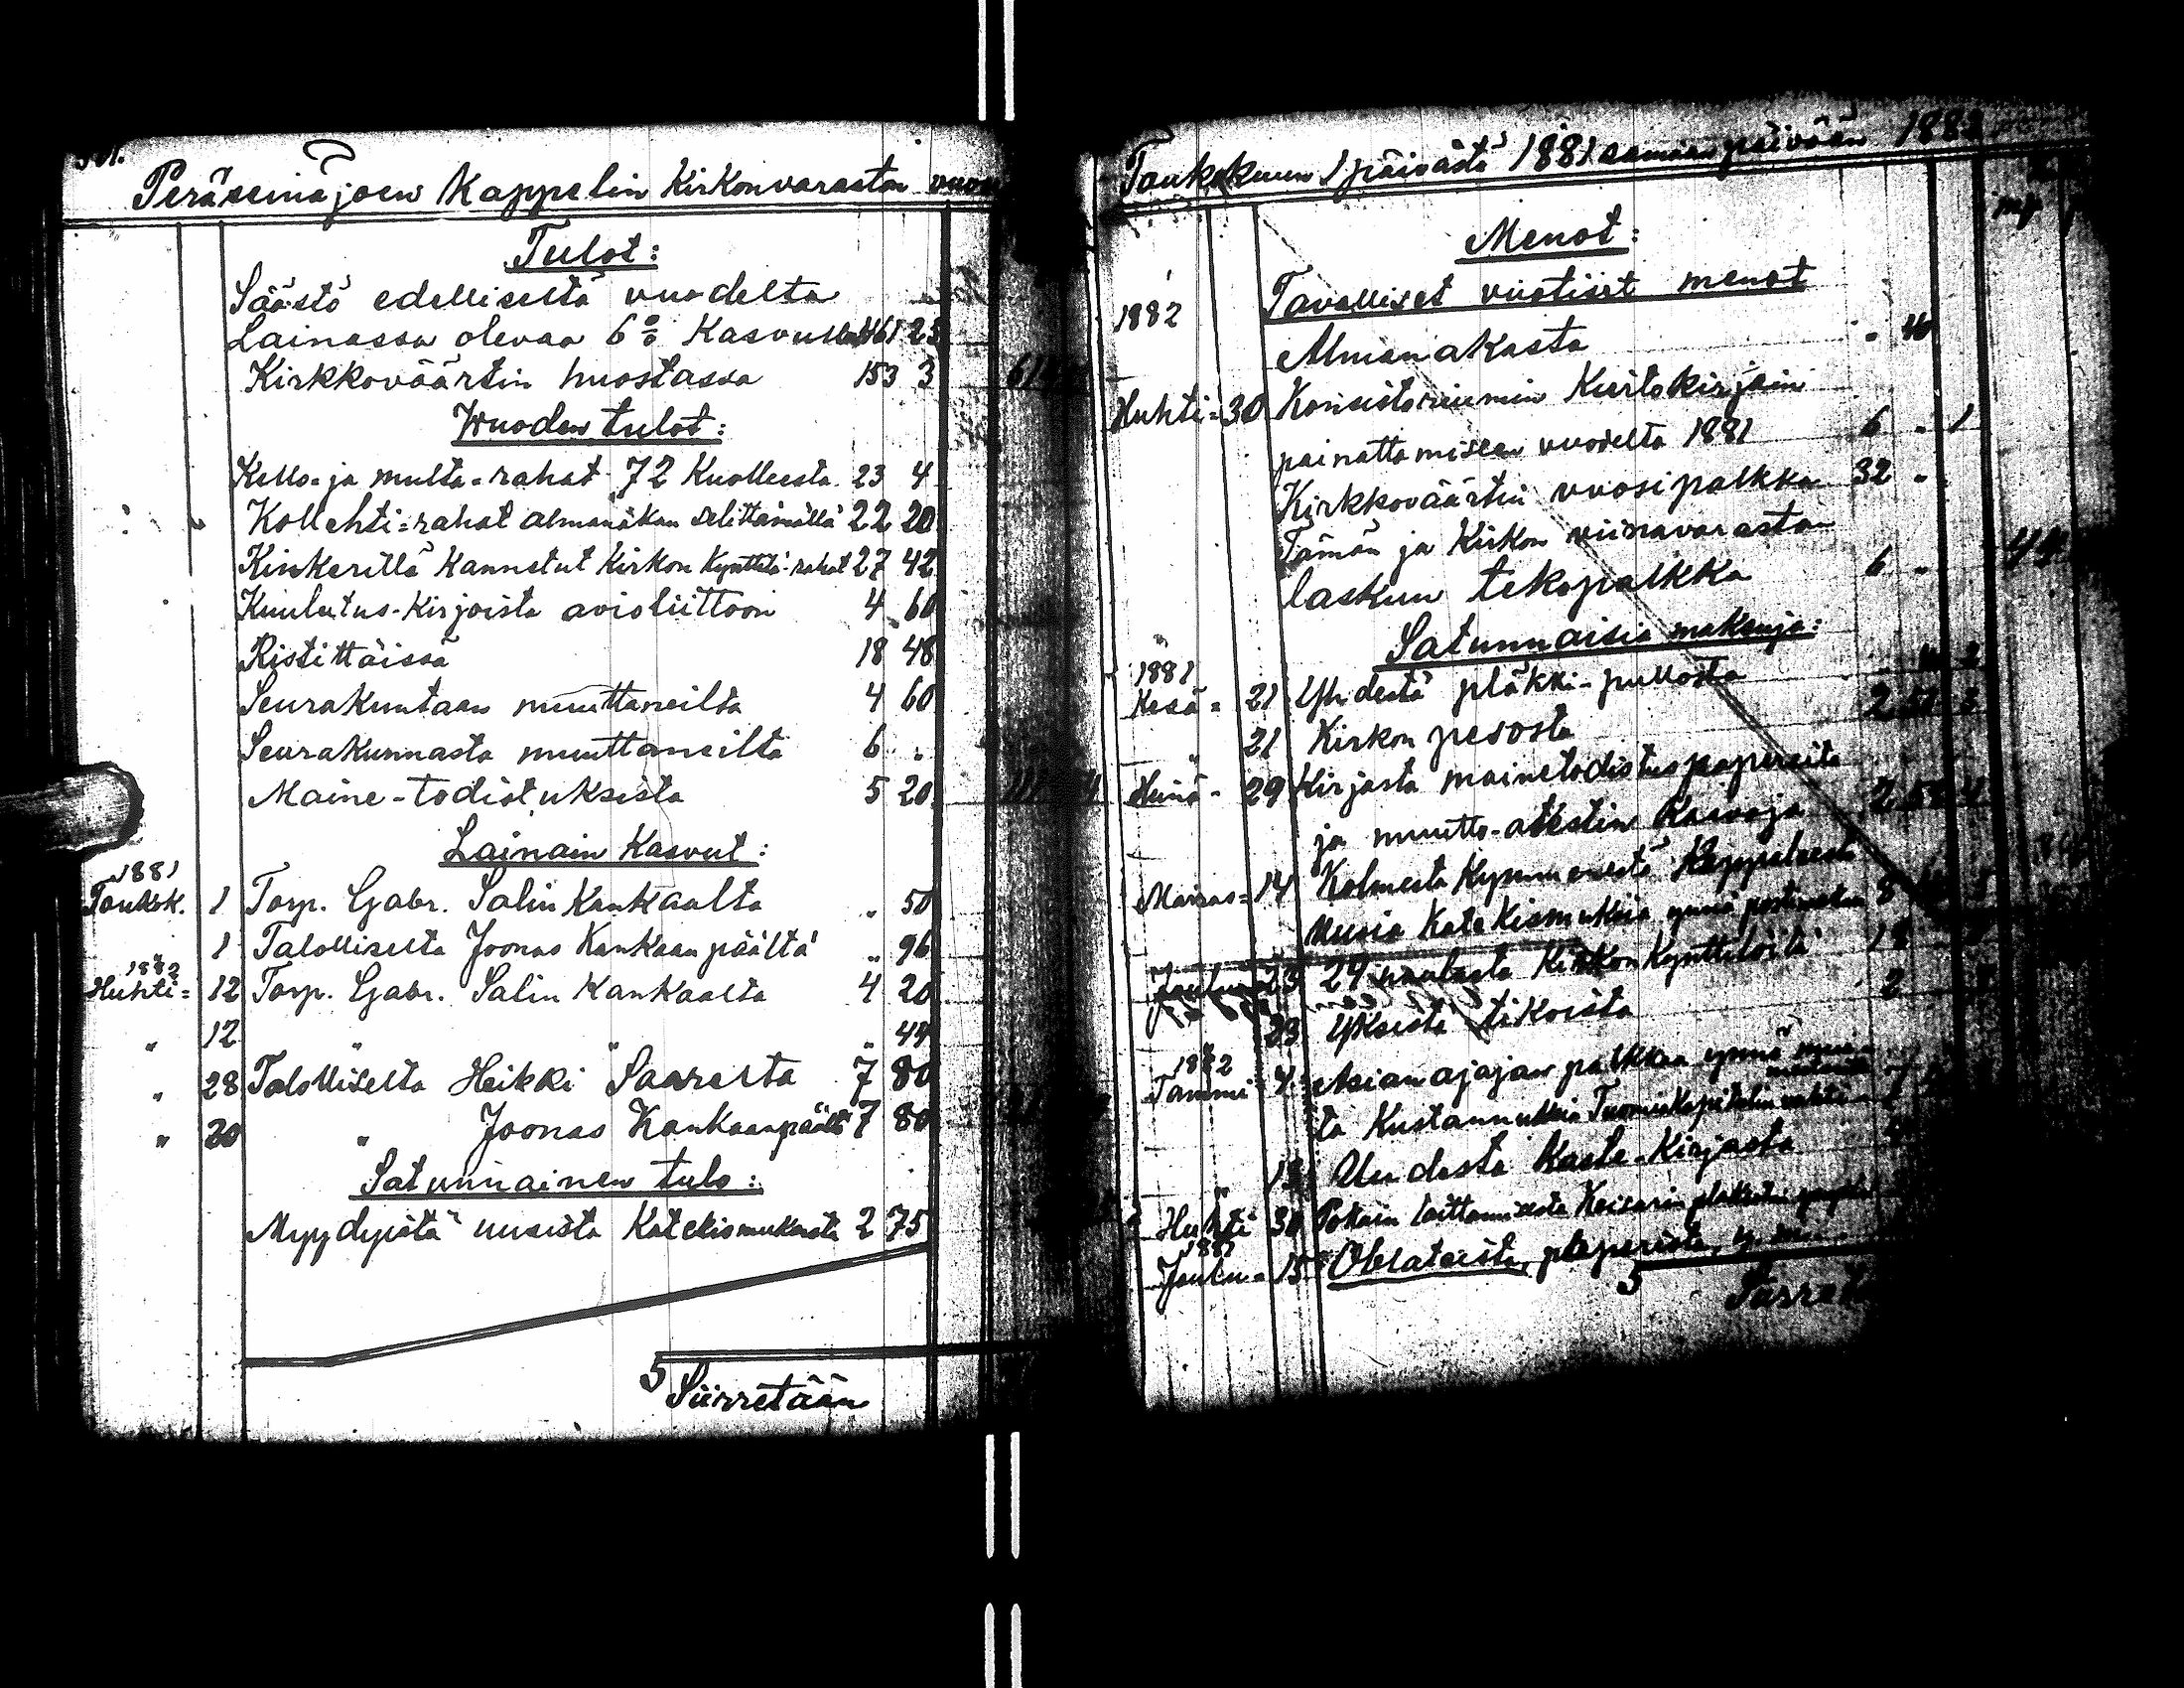 Peräseinäjoen Kappelin Kirkonvaraston
Tulot:
Säästö edelliseltä vuodelta
Lainassa olevaa 6% Kasvulla 461 25
Kirkkoväärtin huostassa 153 3
Wuoden tulot:
Kello- ja multa-rahat 72 Kuolleesta 23 4
Kollehti-rahat almanakan selittämällä 22 20
Kinkerillä Kannetut Kirkon Kynttilä-rahat 27 42
Kuulutus-Kirjoista avioliittoon 4 60
Ristittäissä 18 48
Seurakuntaan muuttaneilta 4 60
Seurakunnasta muuttaneilta 6 "
Maine-todistuksista 5 20
Lainain Kasvut:
1881
Toukok. 1 Torp. Gabr. Salin Kankaalta " 50
1 Talolliselta Joonas Kankaanpäältä " 96
1882
Huhti= 12 Torp. Gabr. Salin Kankaalta 4 20
" 12 " " " 44
" 28 Talolliselta Heikki Saarelta 7 80
" 20 " Joonas Kankaanpäältä 7 80
Satunnainen tulo:
Myydyistä uusista Katekismuksista 2 75
Siirretään
Toukokuun 1 päivästä 1881 samaan päivään 1882
Menot:
Tavalliset vuotiset menot
1882
Almanakasta " 40
Huhti= 30 Konsistoriumin Kiertokirjain
painattamiseen vuodelta 1881 6 " 1
Kirkkoväärtin vuosipalkka 32 "
Tämän ja Kirkon viinavaraston
laskun tekopalkka 6 "
Satunnaisia maksuja:
1881
Kesä= 21 Yhdestä pläkki-pullosta
" 21 Kirkon pesosta 2
Heinä- 29 Kirjasta mainetodistuspapereita
ja muutto-atestin Kaavoja 2
Marras= 14 Kolmesta Kymmenestä Kappaleesta
uusia Katekismuksia ynnä 8
Joulu= 23 24 naulasta Kirkon Kynttilöitä 18
23 Yksistä tikoista 2
1882
Tammi 4 Asianajajan palkkaa ynnä
ta Kustannuksia Tuomiokapitelin
13 Uudesta Kaste-Kirjasta
Huhti 30 Keisarin
1881
Joulu= 15 Oblateista, plaperista,
Siirret